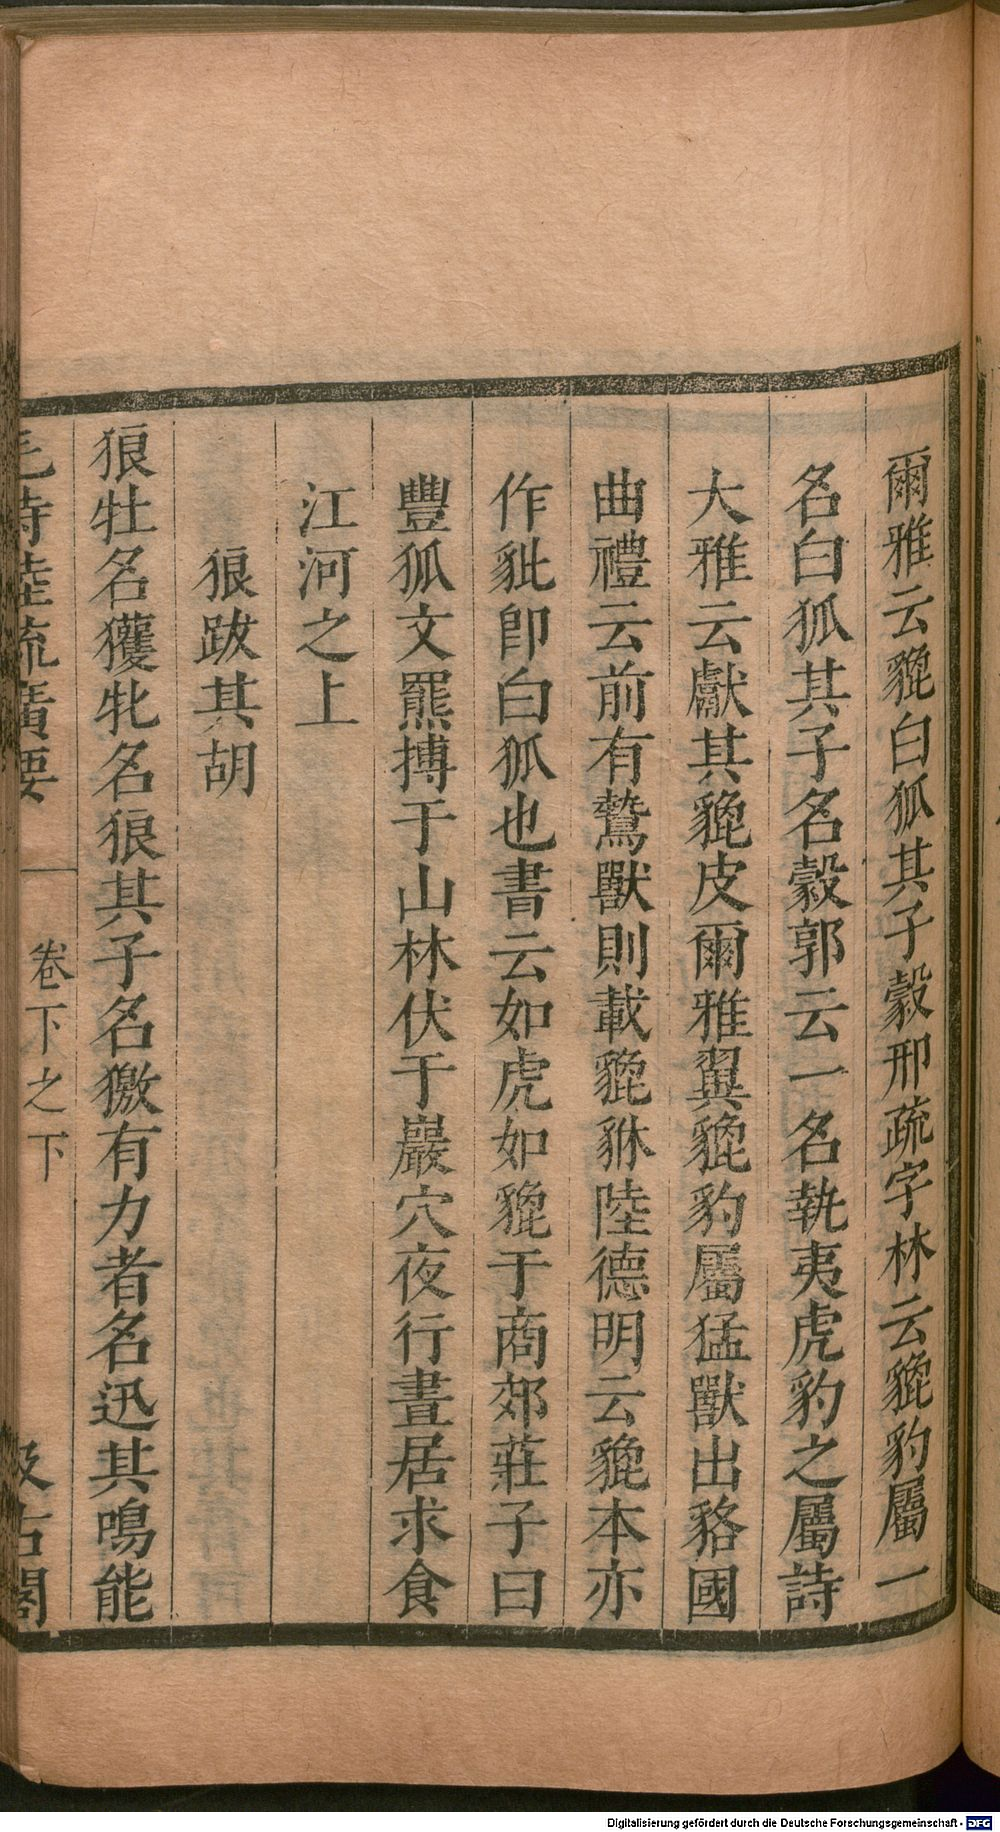 爾雅云貔白狐其子縠邢疏字林云貔豹屬一
名白狐其子名縠郭云一名執夷虎豹之屬詩
大雅云獻其貔皮爾雅翼貔豹屬猛獸出貉國
曲禮云前有鷙獸則載貔貅陸德明云貔本亦
作豼卽白狐也書云如虎如貔于商郊莊子曰
豐狐文羆搏于山林伏于巖穴夜行晝居求食
江河之上
狼跋其胡
狼牡名獾牝名狼其子名獥有力者名迅其鳴能
毛詩陸疏廣要
卷下之下
汲古閣
Digitalisierung gefördert durch die Deutsche Forschungsgemeinschaft - DFG